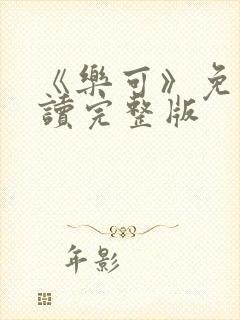 《樂可》免
讀完整版
年影